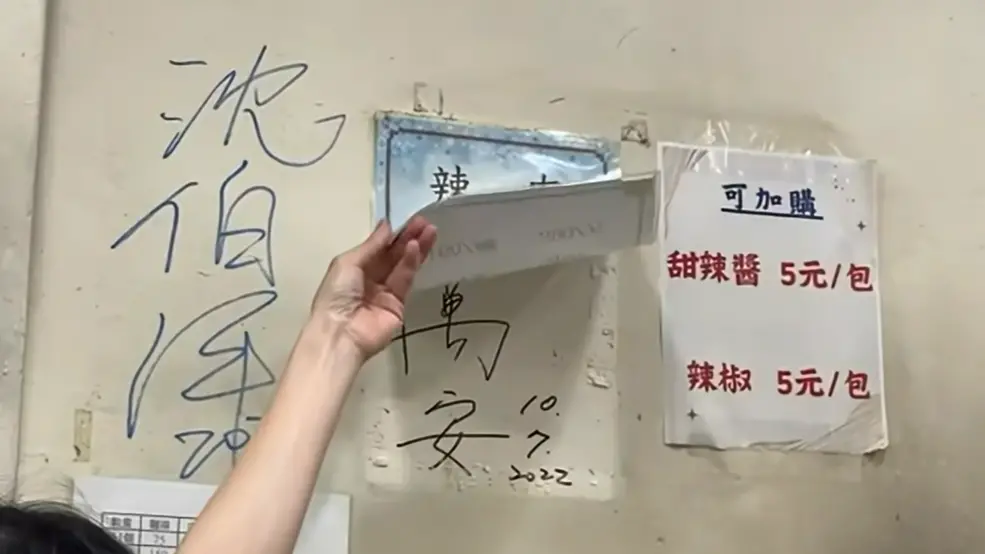 沈
伯
洋
辣
萬
安
10.
7.
2022
可加購
甜辣醬 5元/包
辣椒 5元/包